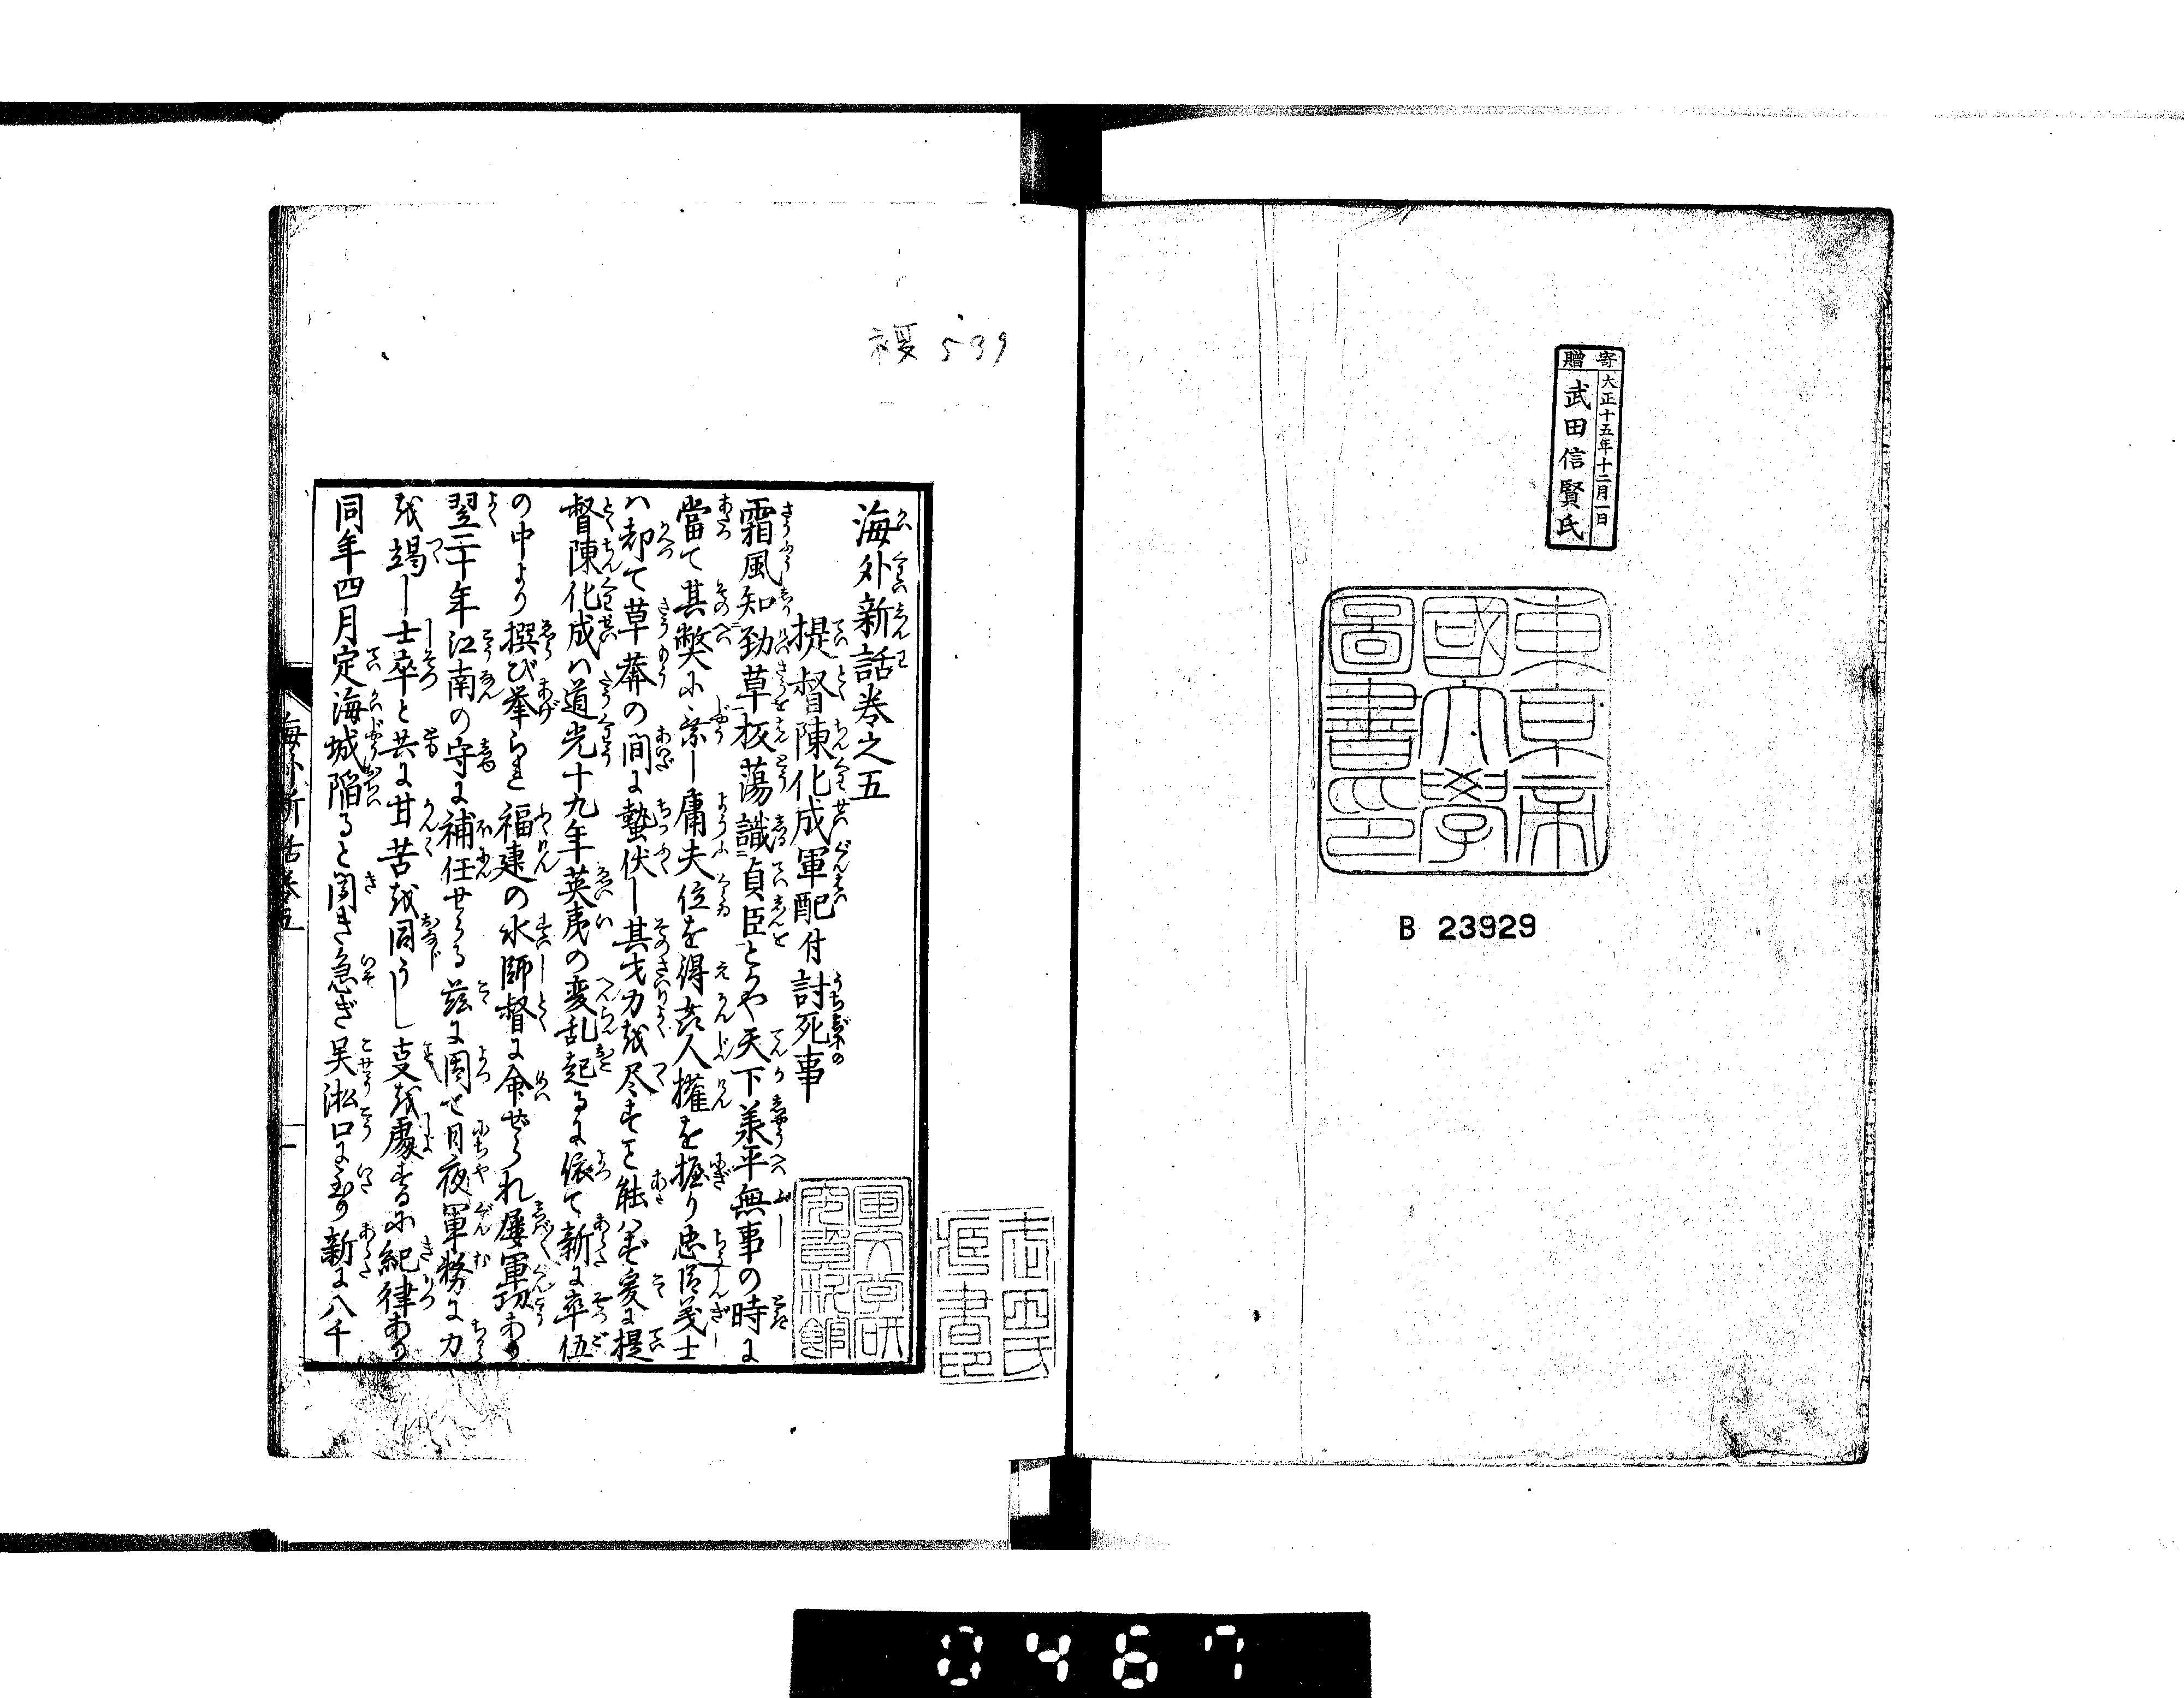 寄贈
大正十五年十二月一日
武田信賢氏
東京帝
國大學
圖書印
B 23929
複 539
海外新話巻之五
提督陳化成軍配付討死事
霜風知勁草板蕩識貞臣とかや天下承平無事の時に
當て其弊に棄し庸夫位を得吉人權を握り忠信義士
ハ却て草莽の間に蟄伏し其才力を尽すこと能はず爰に提
督陳化成ハ道光十九年英夷の変乱起るに依て新に卒伍
の中より撰び挙られ福建の水師督に命ぜられ屡軍功あり
翌二十年江南の守に補任せらる茲に因て日夜軍務に力
を竭し士卒と共に甘苦を同うし支を處するに紀律あり
同年四月定海城陥ると聞き急ぎ呉淞口に至り新に八千
海外新話巻五
一
志田氏
蔵書印
0467